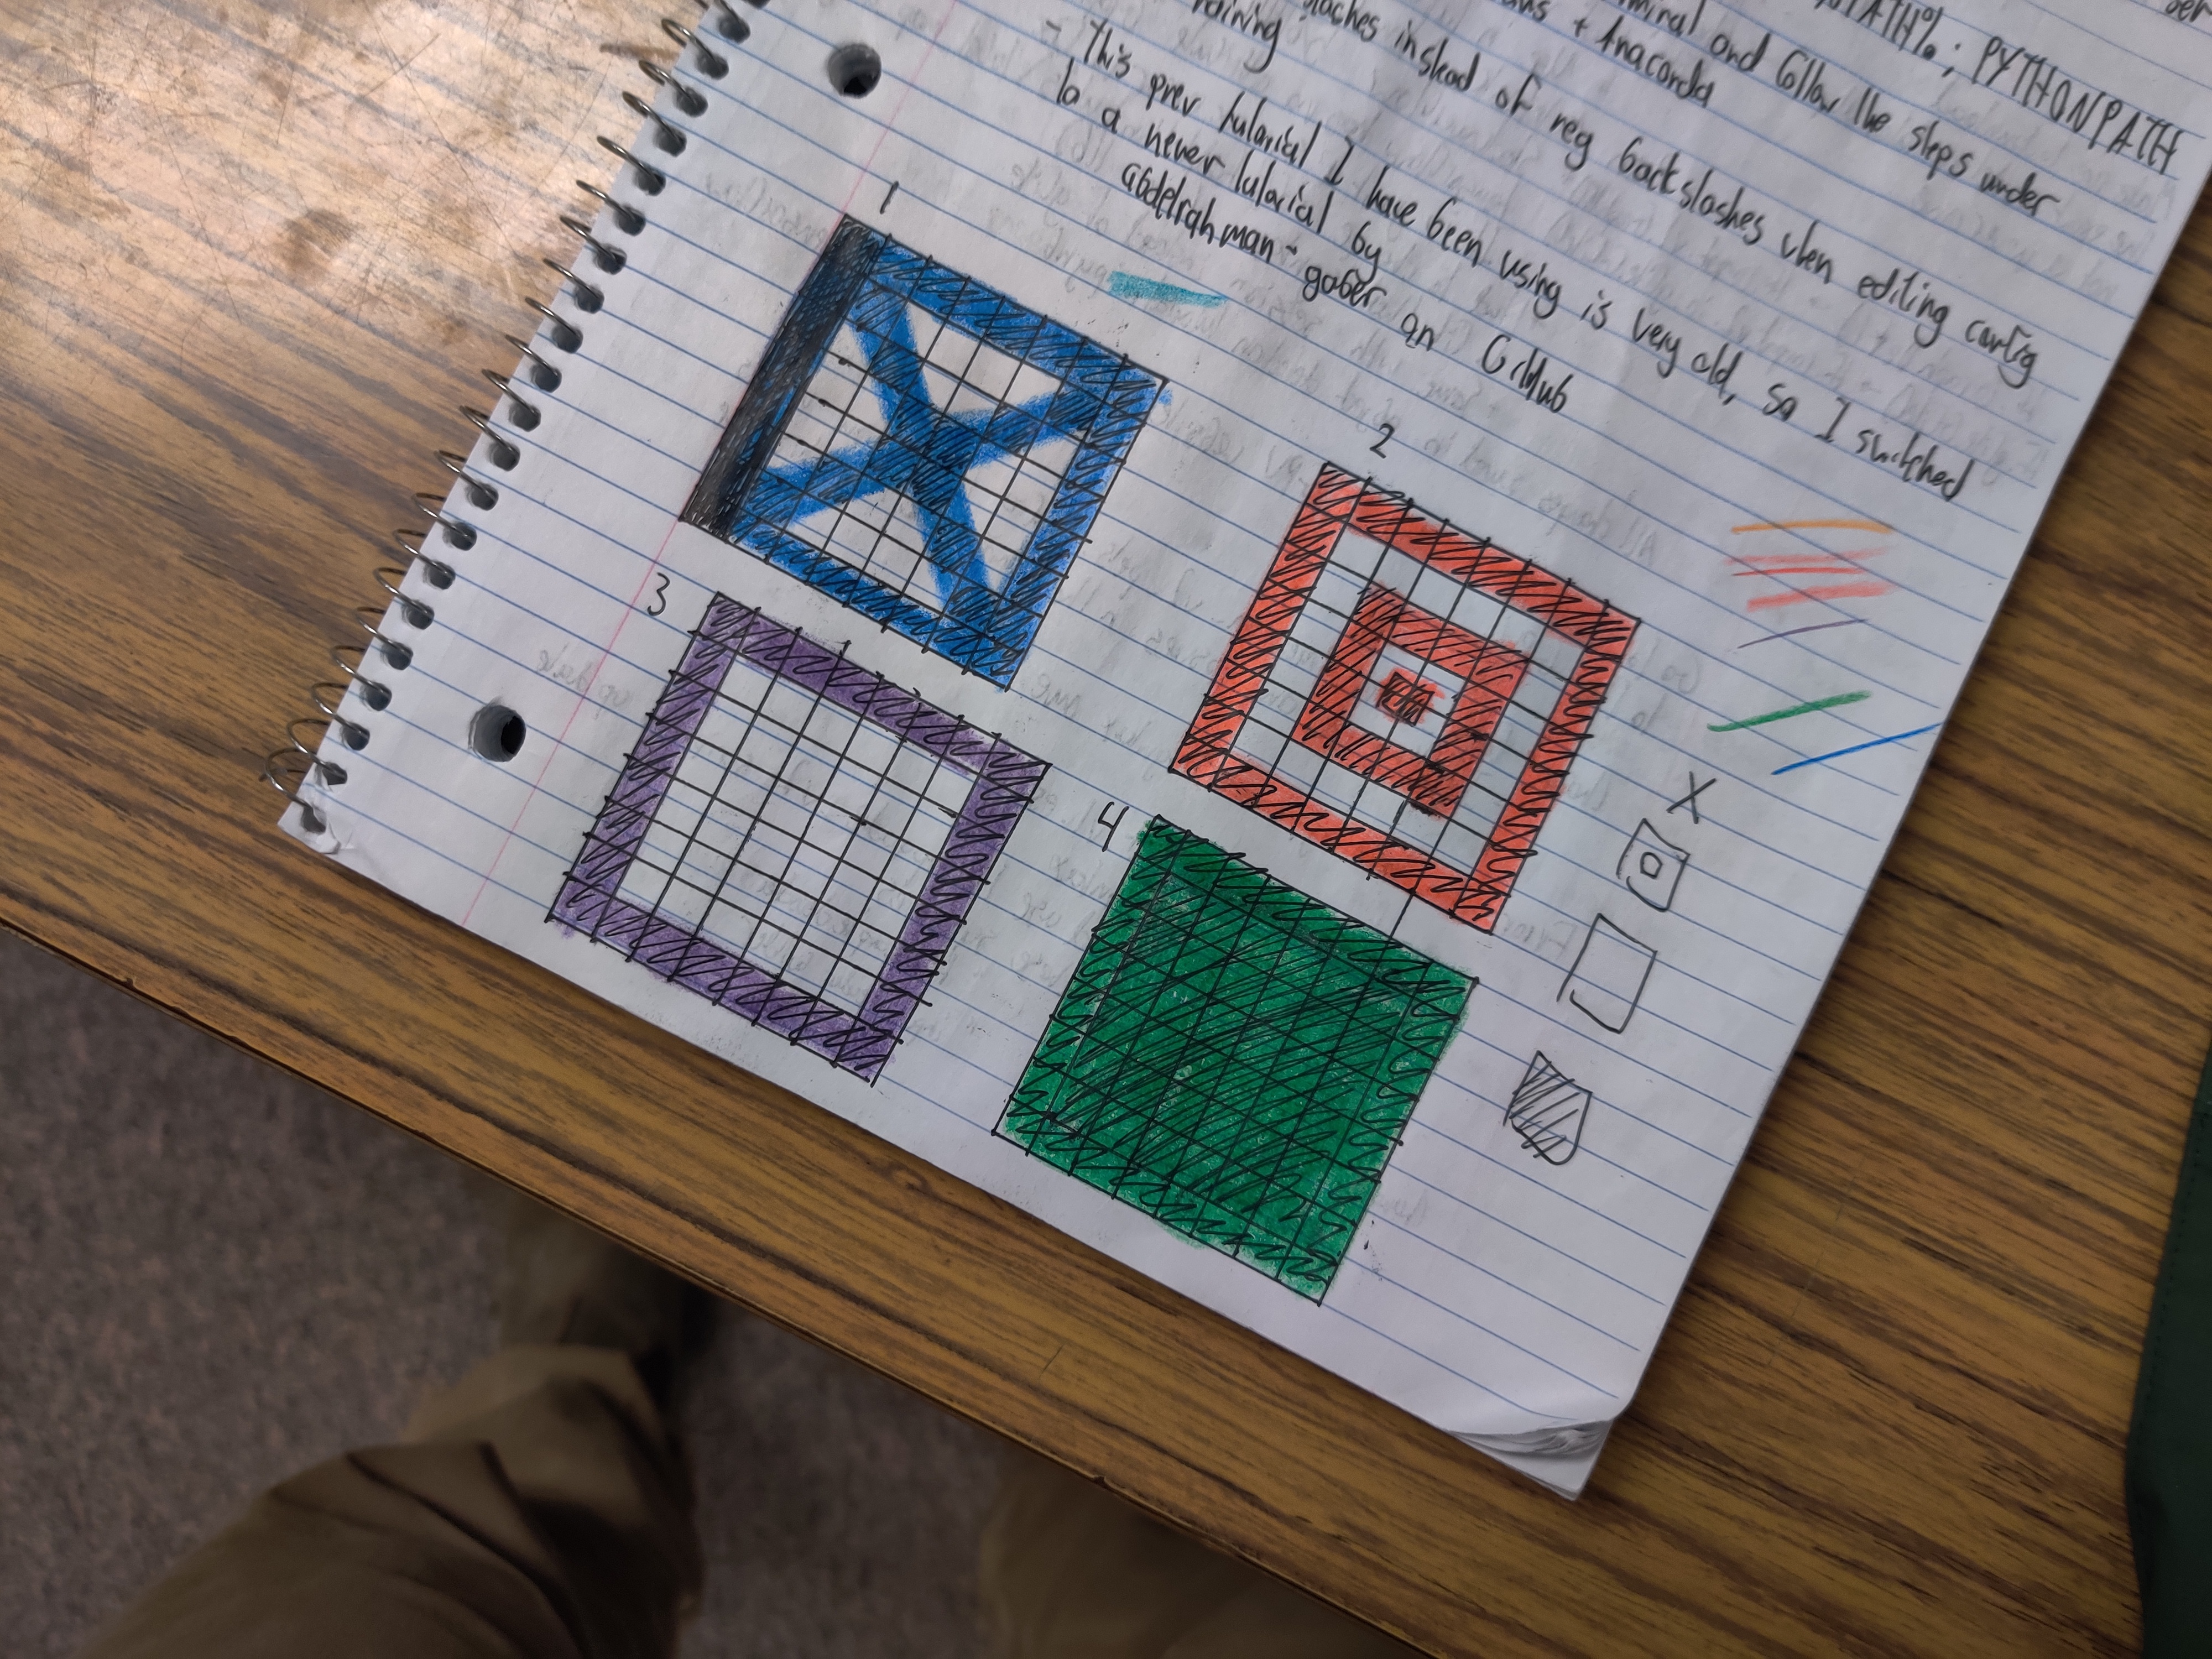 PATH%; PYTHONPATH
and follow the steps under
+ Anaconda
slashes instead of reg backslashes when editing config
- This prev tutorial I have been using is very old, so I switched
to a newer tutorial by
abdelrahman-gaber on GitHub
1
2
3
4
X